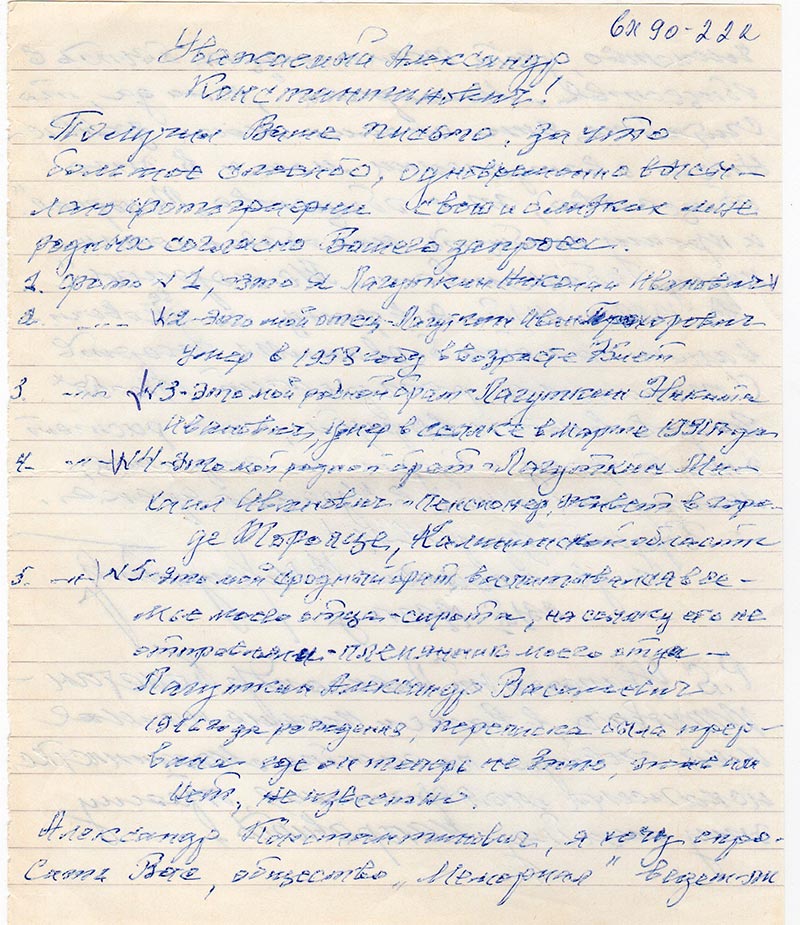 вх 90-22 а
Уважаемый Александр
Константинович!
Получил Ваше письмо, за что
большое спасибо, одновременно высы-
лаю фотографии свою и близких мне
родных согласно Вашего запроса.
1. Фото №1, -это я Лагуткин Николай Иванович
2. -"- №2-Это мой отец-Лагуткин Иван Прохорович
умер в 1958 году в возрасте лет
3 -"- №3-Это мой родной брат-Лагуткин Никита
Иванович, умер в ссылке в марте года
4- -"- №4-Это мой родной брат-Лагуткин Ми-
хаил Иванович-пенсионер, живет в горо-
де Торопце, Калининской области
5. -"- №5-Это мой сродный брат, воспитывался в се-
мье моего отца-сирота, на ссылку его не
отправляли-племянник моего отца-
Лагуткин Александр Васильевич
года рождения, переписка была прер-
вана где он теперь не знаю, жив или
нет, неизвестно.
Александр Константинович, я хочу спро-
сить Вас, общество „Мемориал" ведет-ли